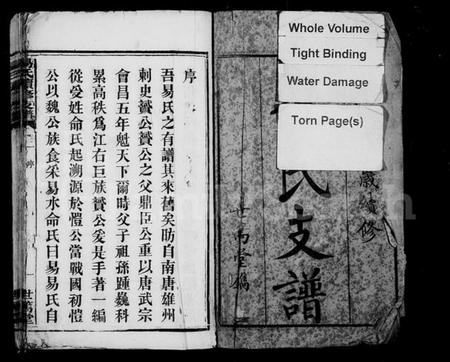 Whole Volume
Tight Binding
Water Damage
Torn Page(s)
歲續修
氏支譜
世萬堂鐫
序
吾易氏之有譜其來舊矣昉自南唐雄州
刺史贇公贇公之父鼎臣公重以唐武宗
會昌五年魁天下爾時父子祖孫踵巍科
累高秩為江右巨族贇公爰是手著一編
從受姓命氏起溯源於愷公當戰國初愷
公以魏公族食采易水命氏曰易易氏自